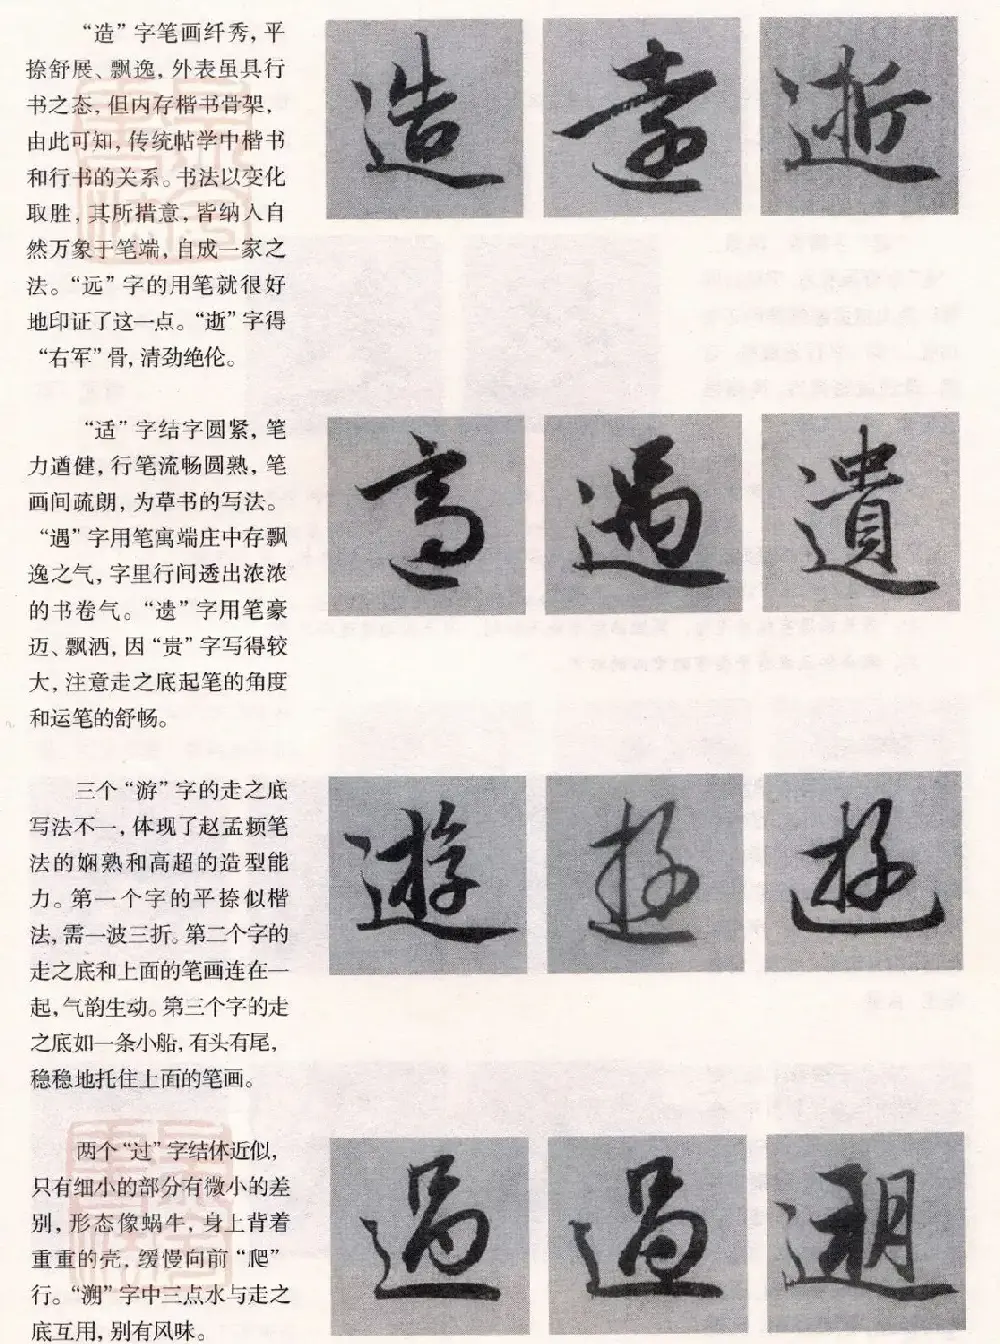 “造”字笔画纤秀，平
捺舒展、飘逸，外表虽具行
书之态，但内存楷书骨架，
由此可知，传统帖学中楷书
和行书的关系。书法以变化
取胜，其所措意，皆纳入自
然万象于笔端，自成一家之
法。“远”字的用笔就很好
地印证了这一点。“逝”字得
“右军”骨，清劲绝伦。
造
逝
“适”字结字圆紧，笔
力遒健，行笔流畅圆熟，笔
画间疏朗，为草书的写法。
“遇”字用笔寓端庄中存飘
逸之气，字里行间透出浓浓
的书卷气。“遗”字用笔豪
迈、飘洒，因“贵”字写得较
大，注意走之底起笔的角度
和运笔的舒畅。
遇
遺
三个“游”字的走之底
写法不一，体现了赵孟頫笔
法的娴熟和高超的造型能
力。第一个字的平捺似楷
法，需一波三折。第二个字的
走之底和上面的笔画连在一
起，气韵生动。第三个字的走
之底如一条小船，有头有尾，
稳稳地托住上面的笔画。
遊
遊
遊
两个“过”字结体近似，
只有细小的部分有微小的差
别，形态像蜗牛，身上背着
重重的壳，缓慢向前“爬”
行。“溯”字中三点水与走之
底互用，别有风味。
過
過
遡